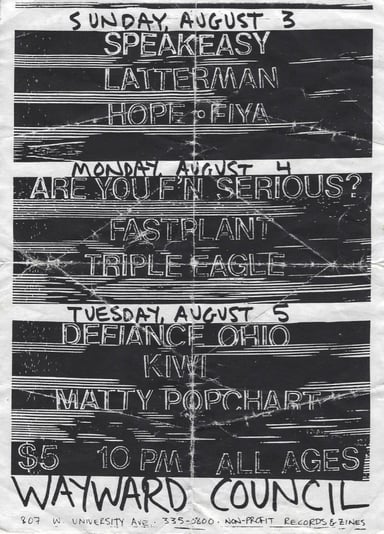 SUNDAY, AUGUST 3
SPEAKEASY
LATTERMAN
HOPE • FIYA
MONDAY, AUGUST 4
ARE YOU F'N SERIOUS?
FASTPLANT
TRIPLE EAGLE
TUESDAY, AUGUST 5
DEFIANCE OHIO
KIWI
MATTY POPCHART
$5 10 PM ALL AGES
WAYWARD COUNCIL
807 W. UNIVERSITY AVE. • 335-0800 • NON-PROFIT RECORDS & ZINES